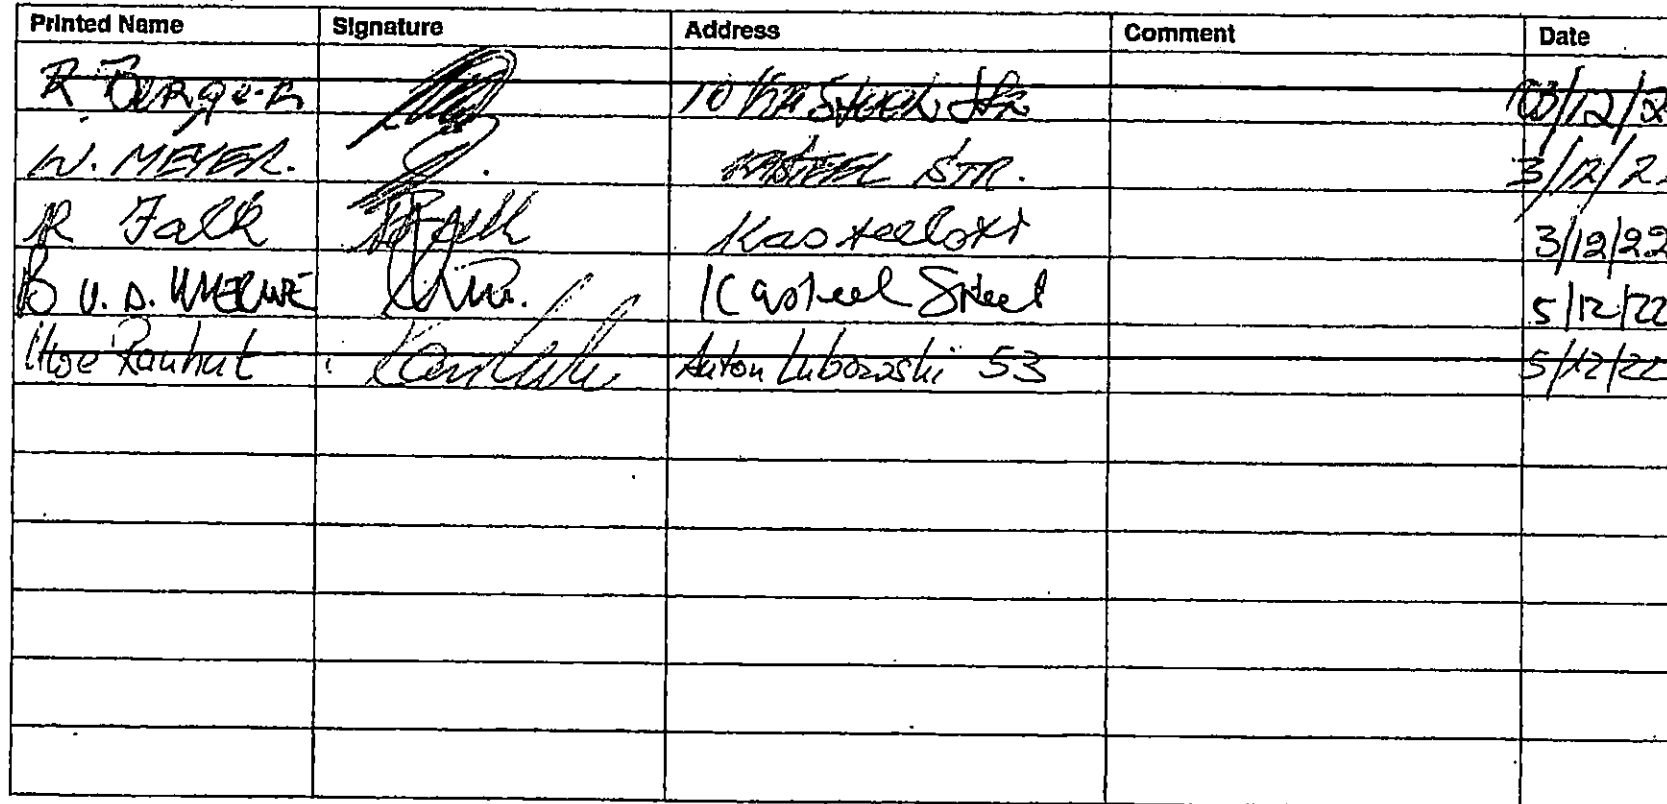 Printed Name Signature Address Comment Date
R Burger 10 03/12/2
W. MEYER. KASTEEL STR. 3/12/22
R Falk RFalk Kasteelstr 3/12/22
B V. D. MERWE Kasteel Street 5/12/22
Uwe Rauhut Anton Lubowski 53 5/12/22